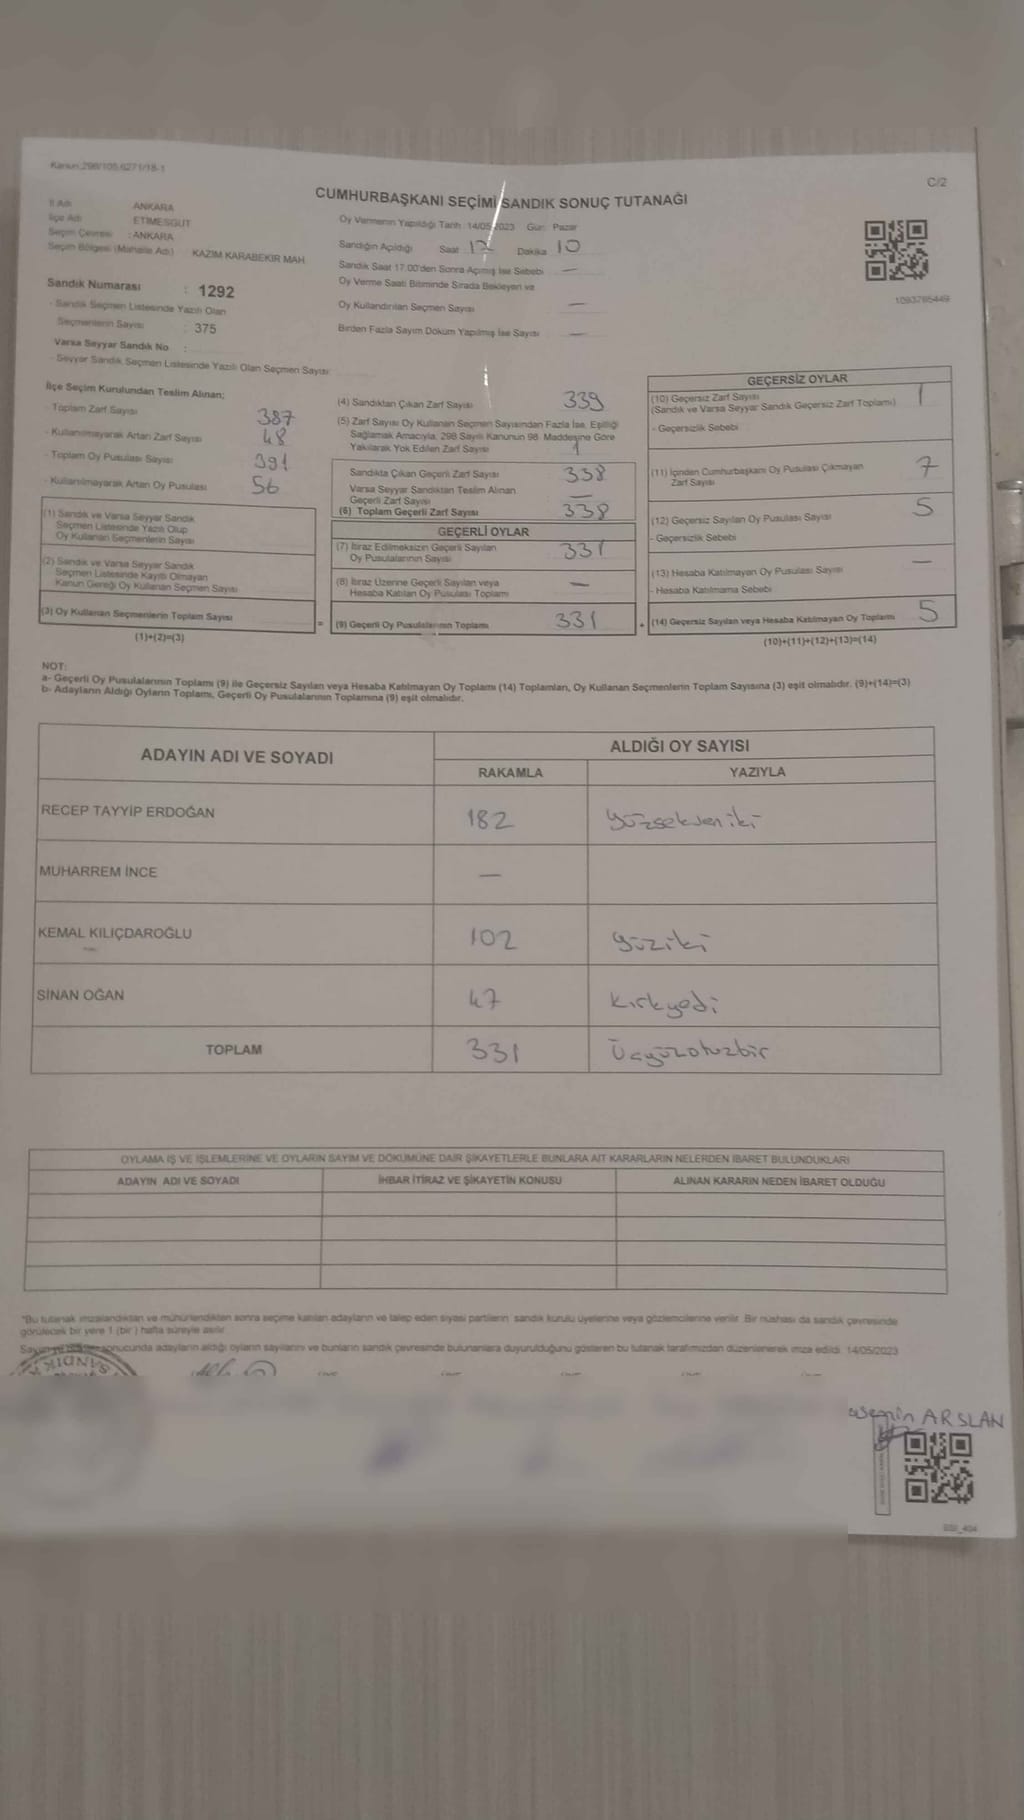 Kanun:298/105,6271/18-1
C/2
CUMHURBAŞKANI SEÇİMİ SANDIK SONUÇ TUTANAĞI
İl Adı ANKARA
İlçe Adı ETİMESGUT
Seçim Çevresi : ANKARA
Seçim Bölgesi (Mahalle Adı) KAZIM KARABEKİR MAH
Sandık Numarası : 1292
- Sandık Seçmen Listesinde Yazılı Olan
Seçmenlerin Sayısı : 375
Varsa Seyyar Sandık No :
- Seyyar Sandık Seçmen Listesinde Yazılı Olan Seçmen Sayısı
Oy Vermenin Yapıldığı Tarih 14/05/2023 Gün: Pazar
Sandığın Açıldığı Saat 17 Dakika 10
Sandık Saat 17.00'den Sonra Açılmış İse Sebebi —
Oy Verme Saati Bitiminde Sırada Bekleyen ve
Oy Kullandırılan Seçmen Sayısı —
Birden Fazla Sayım Döküm Yapılmış İse Sayısı —
1093765449
İlçe Seçim Kurulundan Teslim Alınan;
- Toplam Zarf Sayısı 387
- Kullanılmayarak Artan Zarf Sayısı 48
- Toplam Oy Pusulası Sayısı 391
- Kullanılmayarak Artan Oy Pusulası 56
(1) Sandık ve Varsa Seyyar Sandık
Seçmen Listesinde Yazılı Olup
Oy Kullanan Seçmenlerin Sayısı
(2) Sandık ve Varsa Seyyar Sandık
Seçmen Listesinde Kayıtlı Olmayan
Kanun Gereği Oy Kullanan Seçmen Sayısı
(3) Oy Kullanan Seçmenlerin Toplam Sayısı
(1)+(2)=(3)
(4) Sandıktan Çıkan Zarf Sayısı 339
(5) Zarf Sayısı Oy Kullanan Seçmen Sayısından Fazla İse, Eşitliği
Sağlamak Amacıyla, 298 Sayılı Kanunun 98. Maddesine Göre
Yakılarak Yok Edilen Zarf Sayısı 1
Sandıkta Çıkan Geçerli Zarf Sayısı 338
Varsa Seyyar Sandıktan Teslim Alınan
Geçerli Zarf Sayısı —
(6) Toplam Geçerli Zarf Sayısı 338
GEÇERLİ OYLAR
(7) İtiraz Edilmeksizin Geçerli Sayılan
Oy Pusulalarının Sayısı 331
(8) İtiraz Üzerine Geçerli Sayılan veya
Hesaba Katılan Oy Pusulası Toplamı —
= (9) Geçerli Oy Pusulalarının Toplamı 331
GEÇERSİZ OYLAR
(10) Geçersiz Zarf Sayısı 1
(Sandık ve Varsa Seyyar Sandık Geçersiz Zarf Toplamı)
- Geçersizlik Sebebi
(11) İçinden Cumhurbaşkanı Oy Pusulası Çıkmayan
Zarf Sayısı 7
(12) Geçersiz Sayılan Oy Pusulası Sayısı 5
- Geçersizlik Sebebi
(13) Hesaba Katılmayan Oy Pusulası Sayısı —
- Hesaba Katılmama Sebebi
+ (14) Geçersiz Sayılan veya Hesaba Katılmayan Oy Toplamı 5
(10)+(11)+(12)+(13)=(14)
NOT:
a- Geçerli Oy Pusulalarının Toplamı (9) ile Geçersiz Sayılan veya Hesaba Katılmayan Oy Toplamı (14) Toplamları, Oy Kullanan Seçmenlerin Toplam Sayısına (3) eşit olmalıdır. (9)+(14)=(3)
b- Adayların Aldığı Oyların Toplamı, Geçerli Oy Pusulalarının Toplamına (9) eşit olmalıdır.
ADAYIN ADI VE SOYADI
ALDIĞI OY SAYISI
RAKAMLA YAZIYLA
RECEP TAYYİP ERDOĞAN 182 yüzseksen iki
MUHARREM İNCE —
KEMAL KILIÇDAROĞLU 102 yüziki
SİNAN OĞAN 47 kırkyedi
TOPLAM 331 Üçyüzotuzbir
OYLAMA İŞ VE İŞLEMLERİNE VE OYLARIN SAYIM VE DÖKÜMÜNE DAİR ŞİKAYETLERLE BUNLARA AİT KARARLARIN NELERDEN İBARET BULUNDUKLARI
ADAYIN ADI VE SOYADI İHBAR İTİRAZ VE ŞİKAYETİN KONUSU ALINAN KARARIN NEDEN İBARET OLDUĞU
*Bu tutanak imzalandıktan ve mühürlendikten sonra seçime katılan adayların ve talep eden siyasi partilerin sandık kurulu üyelerine veya gözlemcilerine verilir. Bir nüshası da sandık çevresinde
görülecek bir yere 1 (bir) hafta süreyle asılır.
sonucunda adayların aldığı oyların sayılarını ve bunların sandık çevresinde bulunanlara duyurulduğunu gösteren bu tutanak tarafımızdan düzenlenerek imza edildi. 14/05/2023
SANDIK
ARSLAN